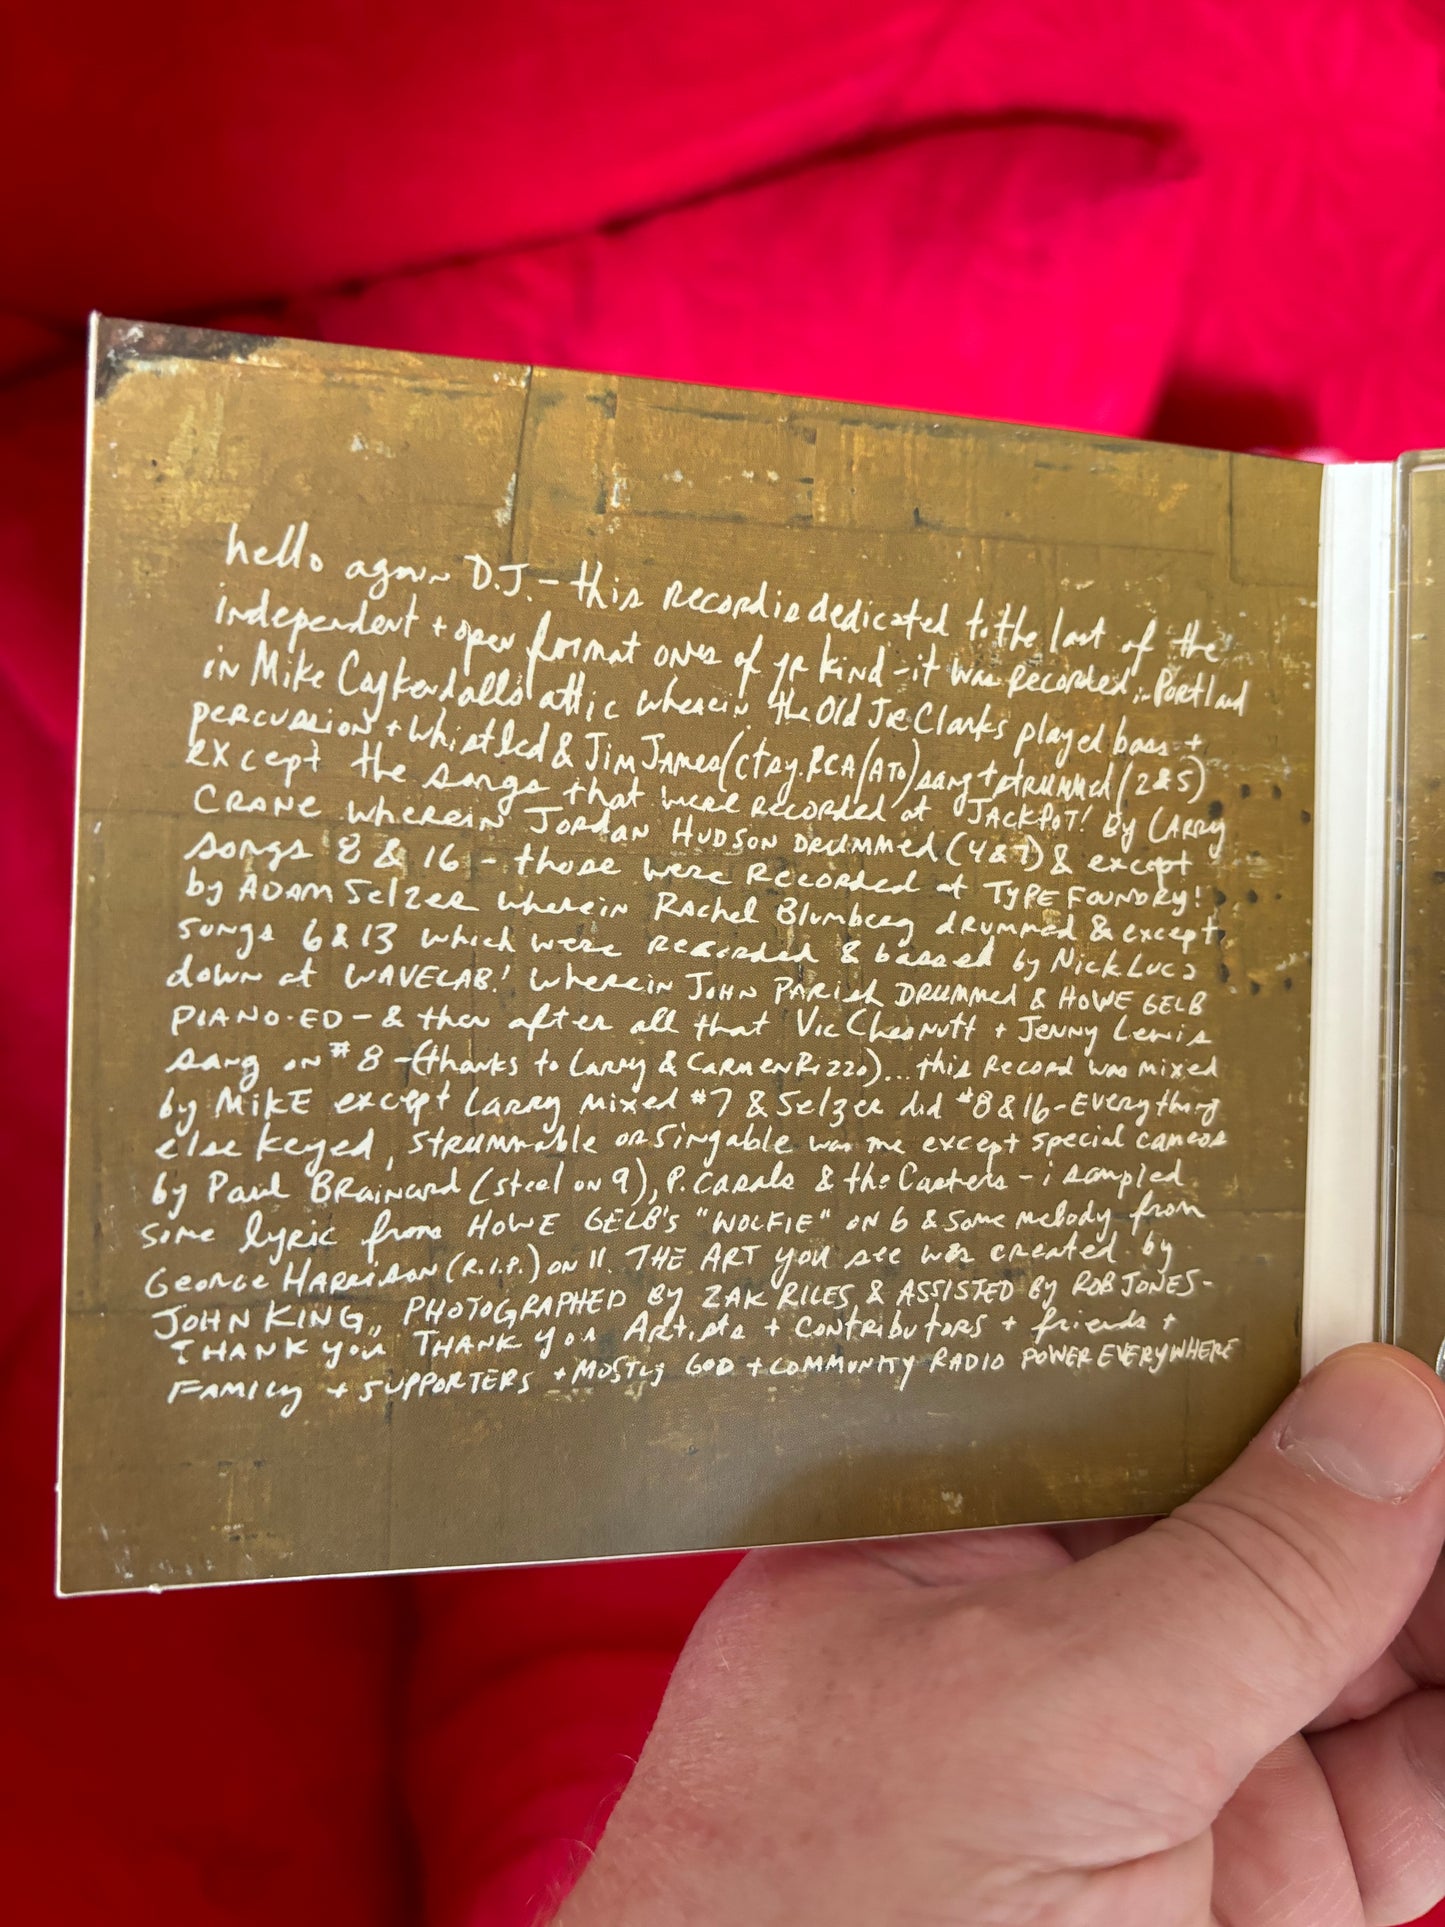 hello again D.J. - this record is dedicated to the last of the
independent + open format ones of yr kind - it was recorded in Portland
in Mike Coykendall's attic wherein the Old Joe Clarks played bass +
percussion + whistled & Jim James (ctsy. RCA/ATO) sang + strummed (2 & 5)
except the songs that were recorded at JACKPOT! By LARRY
CRANE wherein Jordan HUDSON DRUMMED (4 & 7) & except
songs 8 & 16 - those were recorded at TYPE FOUNDRY!
by ADAM Selzer wherein Rachel Blumberg drummed & except
songs 6 & 13 which were recorded & bassed by Nick Luca
down at WAVELAB! wherein JOHN PARISH DRUMMED & HOWE GELB
PIANO-ED - & then after all that Vic Chesnutt + Jenny Lewis
sang on #8 - (thanks to Larry & CARMEN Rizzo)... this record was mixed
by MIKE except Larry mixed #7 & Selzer did #8 & 16 - Everything
else keyed, strummable or singable was me except special cameos
by Paul Brainard (steel on 9), P. Casals & the Casters - i sampled
some lyric from HOWE GELB'S "WOLFIE" on 6 & some melody from
George HARRISON (R.I.P.) on 11. THE ART you see was created by
JOHN KING, PHOTOGRAPHED By ZAK RILES & ASSISTED By ROB JONES -
THANK you THANK you Artists + contributors + friends +
FAMILY + SUPPORTERS + MOSTLY GOD + COMMUNITY RADIO POWER EVERYWHERE